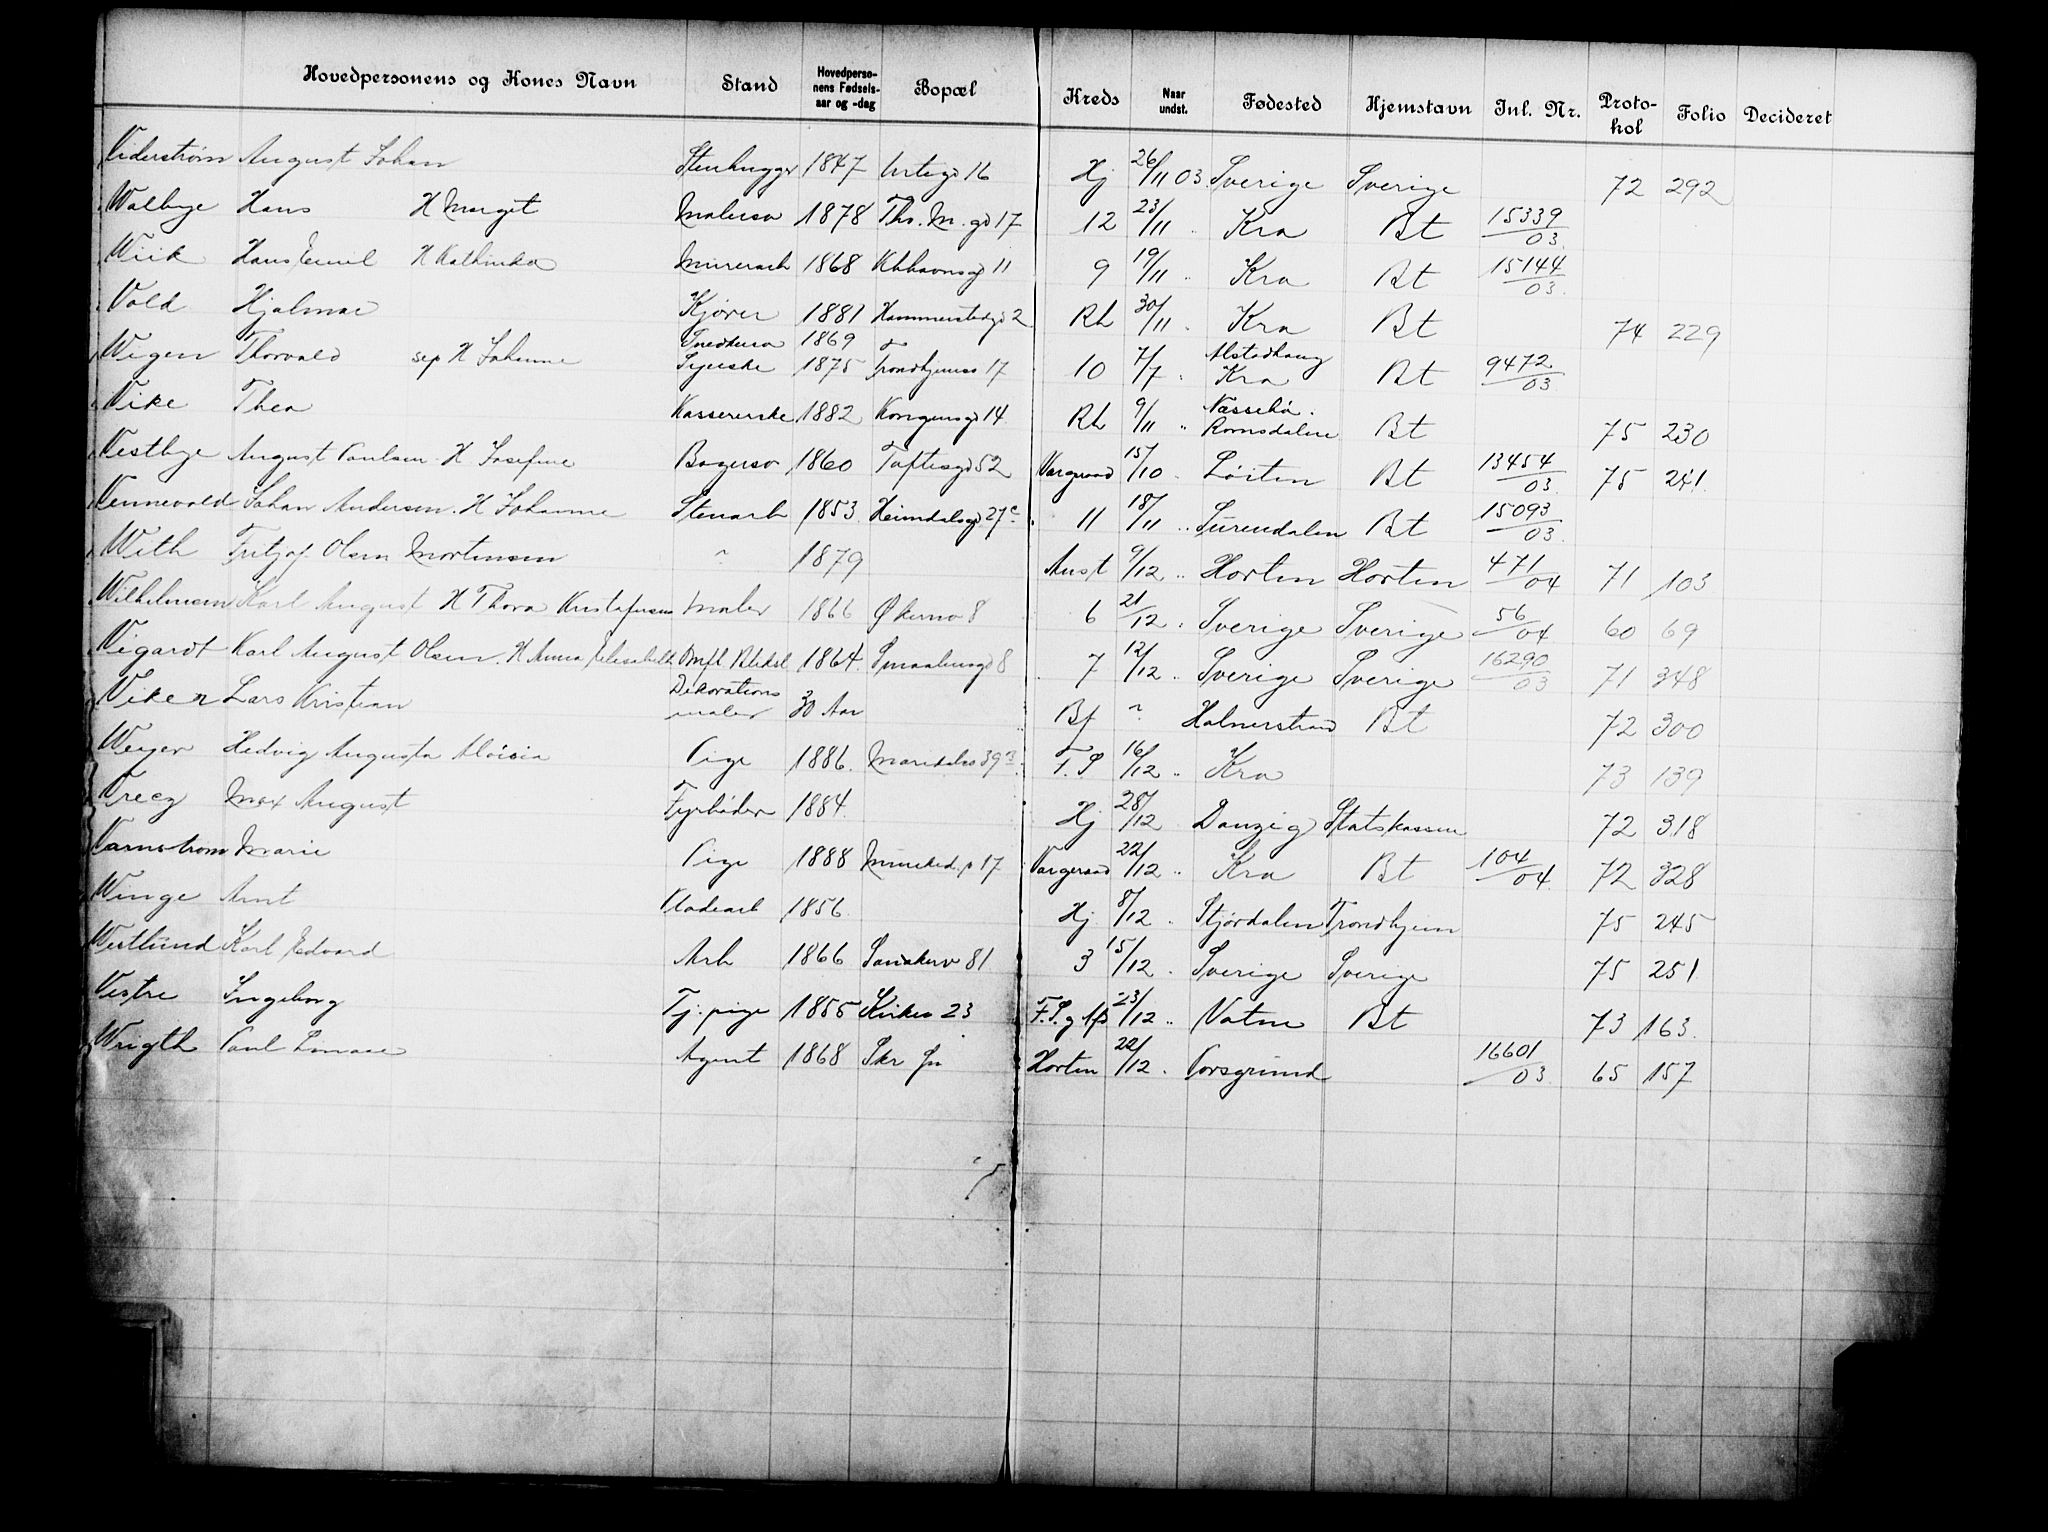 Hovedpersonens og Kones Navn Stand Hovedpersonens Fødselsaar og -dag Bopæl Kreds Naar undst. Fødested Hjemstavn Inl. Nr. Protokol Folio Decideret
Viderstrøm August Johan Stenhugger 1847 Urtegd 16 Hj 26/11 03 Sverige Sverige 72 292
Walbye Hans H Marget Malersv 1878 Ths. M. gd 17 12 23/11 " Kra Bt 15339/03
Wiik Hans Emil H Kathinka Murerarb 1868 Kbhavnsgd 11 9 19/11 " Kra Bt 15144/03
Vold Hjalmar Kjører 1881 Hammerstedgd 2 Rh 30/11 " Kra Bt 74 229
Snedkersv 1869 Alstadhaug
Wigen Thorvald sep H Johanne Syerske 1875 Trondhjemsv 17 10 7/7 " Kra Bt 9472/03
Vike Thea Kassererske 1882 Kongensgd 14 Rh 9/11 " Næssebø Romsdalen Bt 75 230
Vestbye August Paulsen H Josefine Bagersv 1860 Toftesgd 52 Vargeraad 15/10 " Løiten Bt 13454/03 75 241
Vennevold Johan Andersen H Johanne Stenarb 1853 Heimdalsgd 27c 11 18/11 " Surendalen Bt 15093/03
With Fritjof Olsen Mortensen " 1879 Anst 9/12 " Horten Horten 471/04 71 103
Wilhelmsen Karl August H Thora Gustafsen Maler 1866 Økernv 8 6 21/12 " Sverige Sverige 56/04 60 69
Vigardt Karl August Olsen H Anna Elisabeth Omfl. Bliksl 1864 Smaalensgd 8 7 12/12 " Sverige Sverige 16290/03 71 348
Viker Lars Kristian Dekorationsmaler 30 Aar Bf " Holmestrand Bt 72 300
Weyer Hedvig Augusta Aloisia Pige 1886 Maridalsv 39B F.S 16/12 " Kra 73 139
Vrecz Max August Fyrbøder 1884 Hj 28/12 Danzig Statskassen 72 318
Varnstrøm Marie Pige 1888 Munked. p 17 Vargeraad 22/12 " Kra Bt 104/04 72 328
Winge Arnt Pladearb 1856 Hj 8/12 " Stjørdalen Trondhjem 75 245
Westlund Karl Edvard Arb 1866 Sandakerv 81 3 15/12 " Sverige Sverige 75 251
Vestre Ingeborg Tj. pige 1855 Kirkev 23 F.S. g 23/12 " Vatne Bt 73 163
Wrigth Paul Agent 1868 Skr Horten 22/12 " Porsgrund 16601/03 65 157